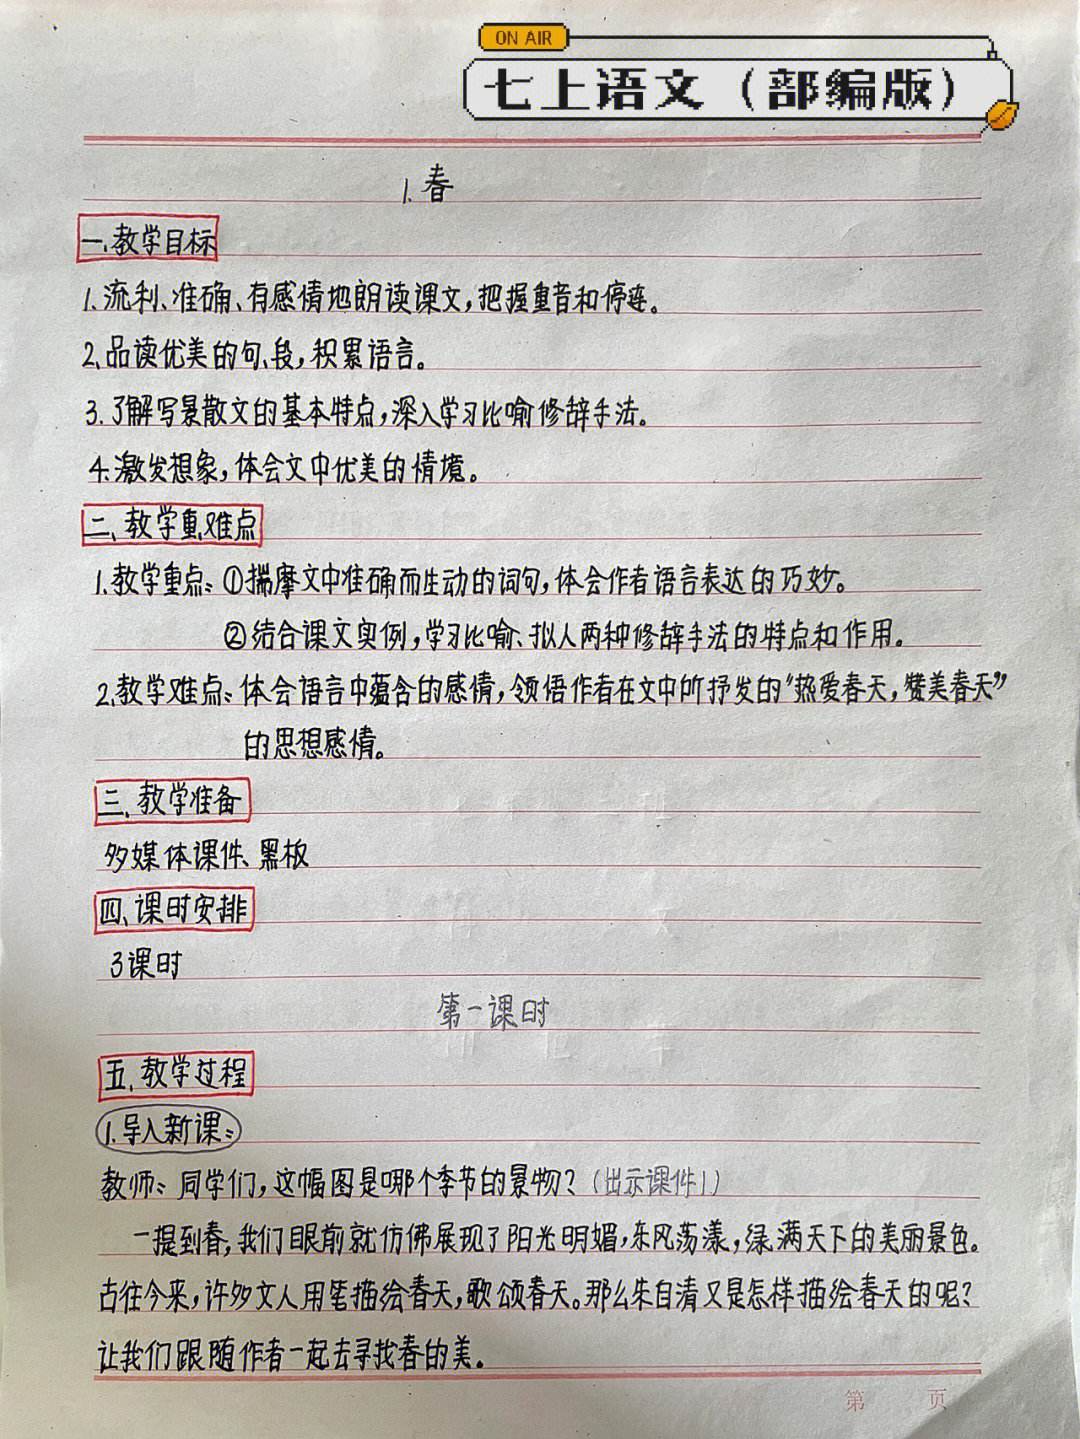 ON AIR
七上语文（部编版）
1.春
一、教学目标
1.流利、准确、有感情地朗读课文，把握重音和停连。
2.品读优美的句、段，积累语言。
3.了解写景散文的基本特点，深入学习比喻修辞手法。
4.激发想象，体会文中优美的情境。
二、教学重难点
1.教学重点：①揣摩文中准确而生动的词句，体会作者语言表达的巧妙。
②结合课文实例，学习比喻、拟人两种修辞手法的特点和作用。
2.教学难点：体会语言中蕴含的感情，领悟作者在文中所抒发的“热爱春天，赞美春天”
的思想感情。
三、教学准备
多媒体课件、黑板
四、课时安排
3课时
第一课时
五、教学过程
1.导入新课：
教师：同学们，这幅图是哪个季节的景物？（出示课件1）
一提到春，我们眼前就仿佛展现了阳光明媚，东风荡漾，绿满天下的美丽景色。
古往今来，许多文人用笔描绘春天，歌颂春天。那么朱自清又是怎样描绘春天的呢？
让我们跟随作者一起去寻找春的美。
第 页